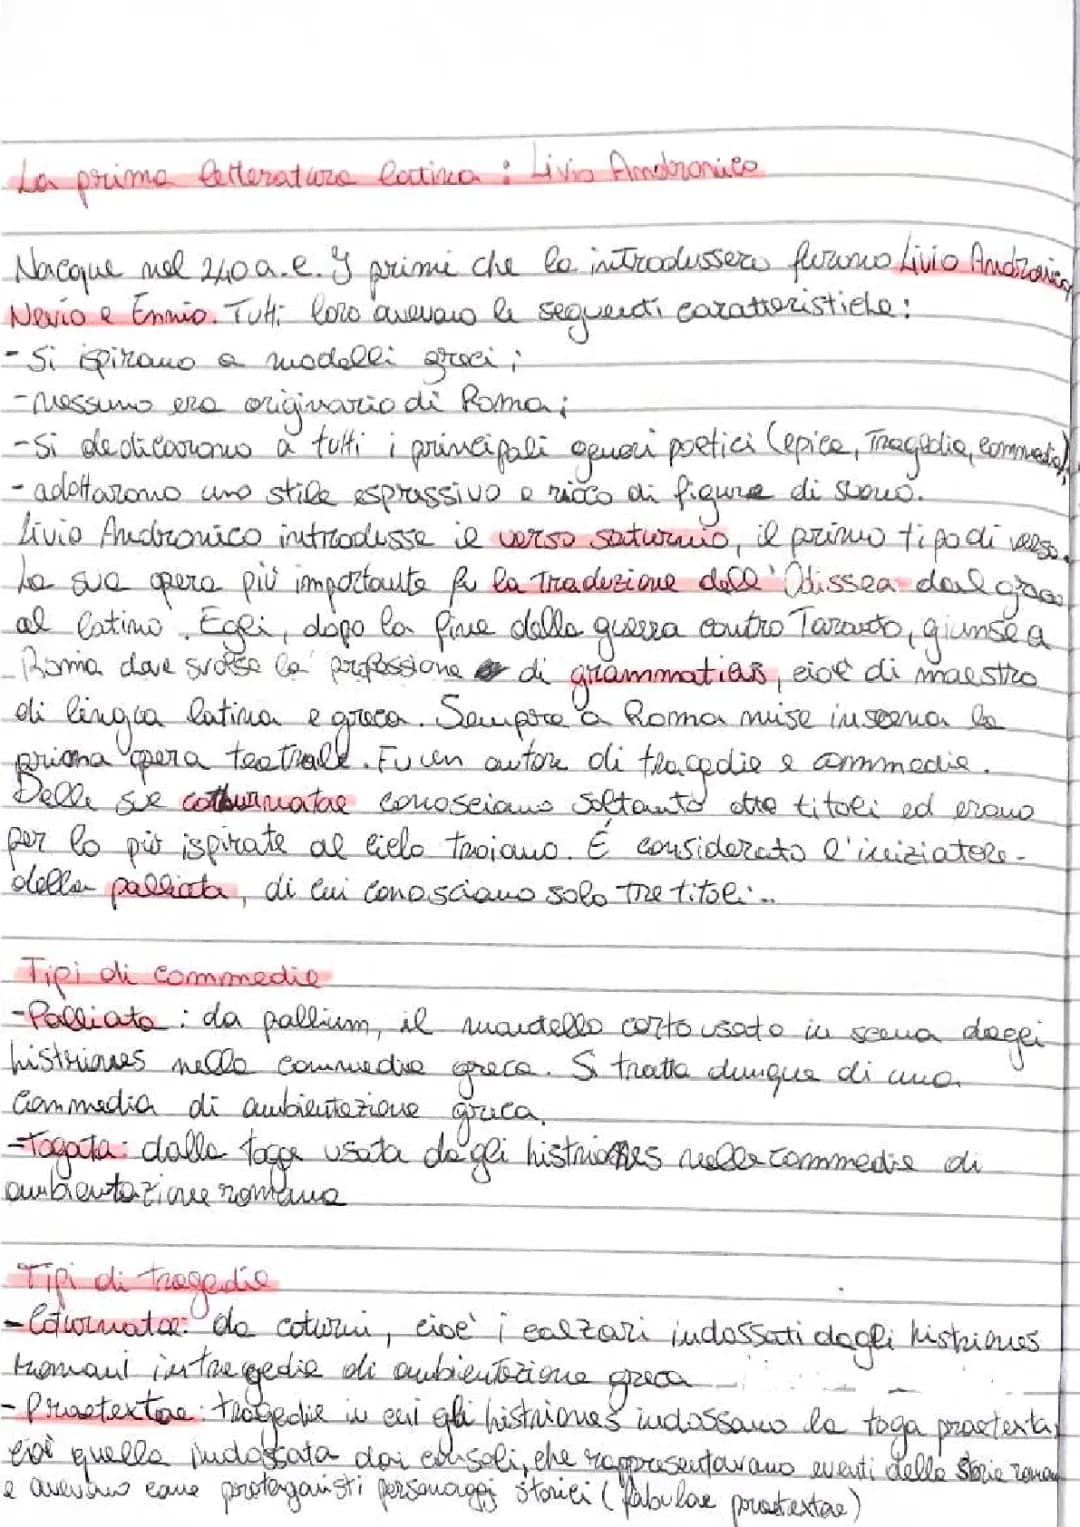 La prima letteratura latina : Livio Andronico
Nacque nel 240 a.e. I primi che la introdussero furono Livio Andronico,
Nevio e Ennio. Tutti loro avevano le seguenti caratteristiche:
- Si ispirano a modelli greci ;
- nessuno era originario di Roma ;
- Si dedicarono a tutti i principali generi poetici (epica, Tragedia, commedia),
- adottarono uno stile espressivo e ricco di figure di suono.
Livio Andronico introdusse il verso saturnio, il primo tipo di verso.
La sua opera più importante fu la Traduzione dell'Odissea dal greco
al latino. Egli, dopo la fine della guerra contro Taranto, giunse a
Roma dove svolse la professione di grammaticus, cioè di maestro
di lingua latina e greca. Sempre a Roma mise in scena la
prima opera teatrale. Fu un autore di tragedie e commedie.
Delle sue cothurnatae conosciamo soltanto otto titoli ed erano
per lo più ispirate al ciclo troiano. É considerato l'iniziatore
della palliata, di cui conosciamo solo tre titoli..
Tipi di commedie
- Palliata : da pallium, il mantello corto usato in scena dagli
histriones nelle commedie greca. Si tratta dunque di una
commedia di ambientazione greca.
- Togata: dalla toga usata dagli histriones nelle commedie di
ambientazione romana
Tipi di tragedie
- Coturnatae: da coturni, cioè i calzari indossati dagli histriones
romani in tragedie di ambientazione greca
- Praetextae: tragedie in cui gli histriones indossano la toga praetexta,
cioè quella indossata dai consoli, che rappresentavano eventi della storia romana
e avevano come protagonisti personaggi storici (fabulae praetextae)